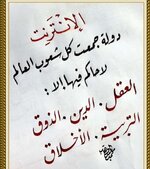 الإنترنت
دولة جمعت كل شعوب العالم
لا حاكم فيها إلا :
العقل . الدين . الذوق
التربية . الأخلاق